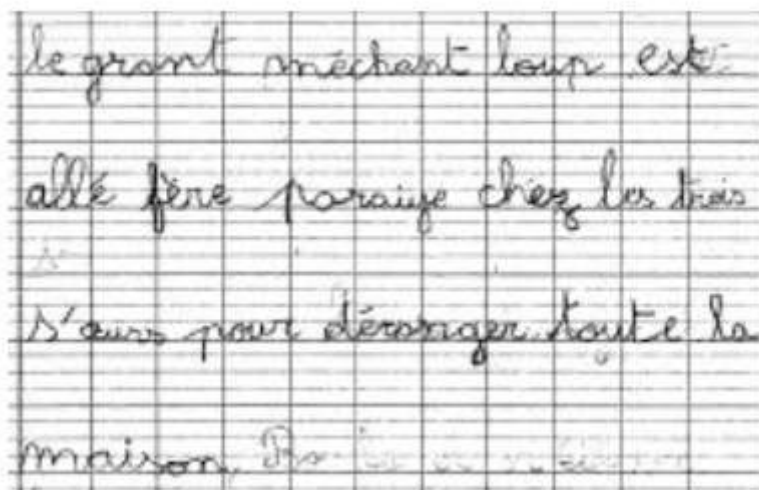 le grant méchant loup est
allé fère paraiye chez les trois
s'ours pour déranger toute la
maison.